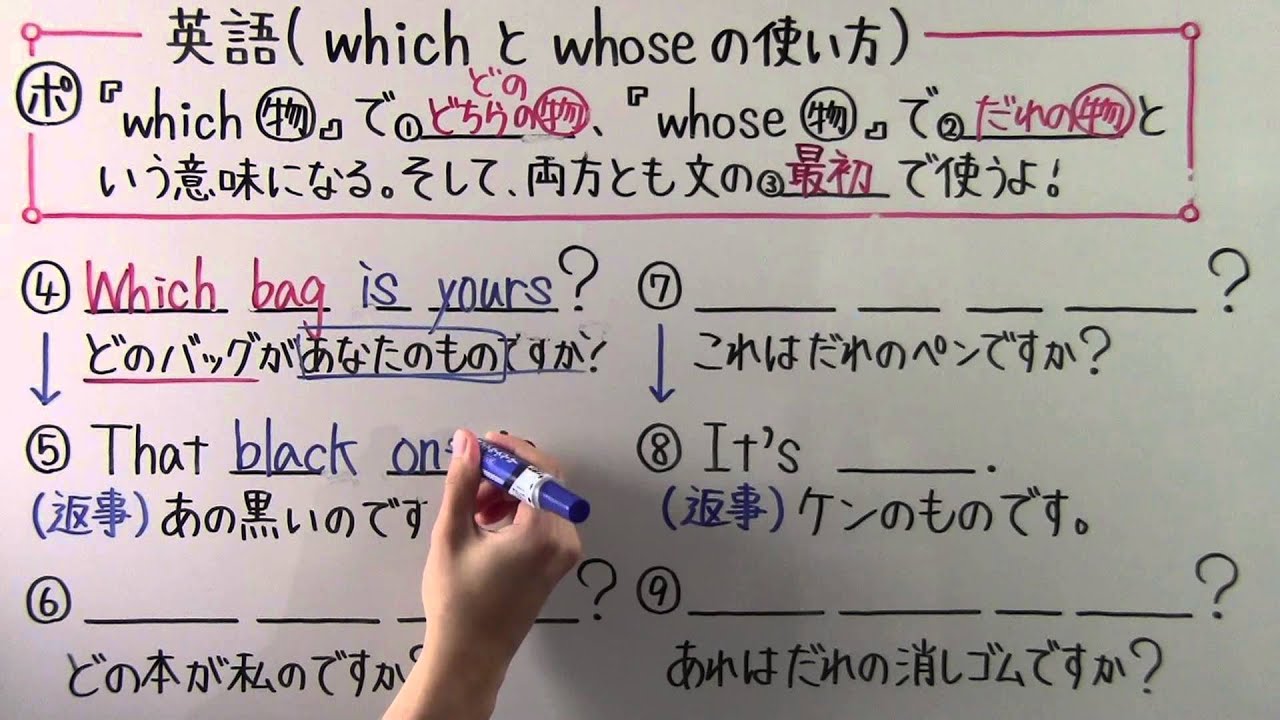 英語(whichとwhoseの使い方)
ポ『which物』で①どちらの物、『whose物』で②だれの物と
どの
いう意味になる。そして、両方とも文の③最初で使うよ!
④ Which bag is yours?
どのバッグがあなたのものですか?
⑤ That black on
(返事)あの黒いのです
⑥ ?
どの本が私のですか?
⑦ ?
これはだれのペンですか?
⑧ It's .
(返事)ケンのものです。
⑨ ?
あれはだれの消しゴムですか?